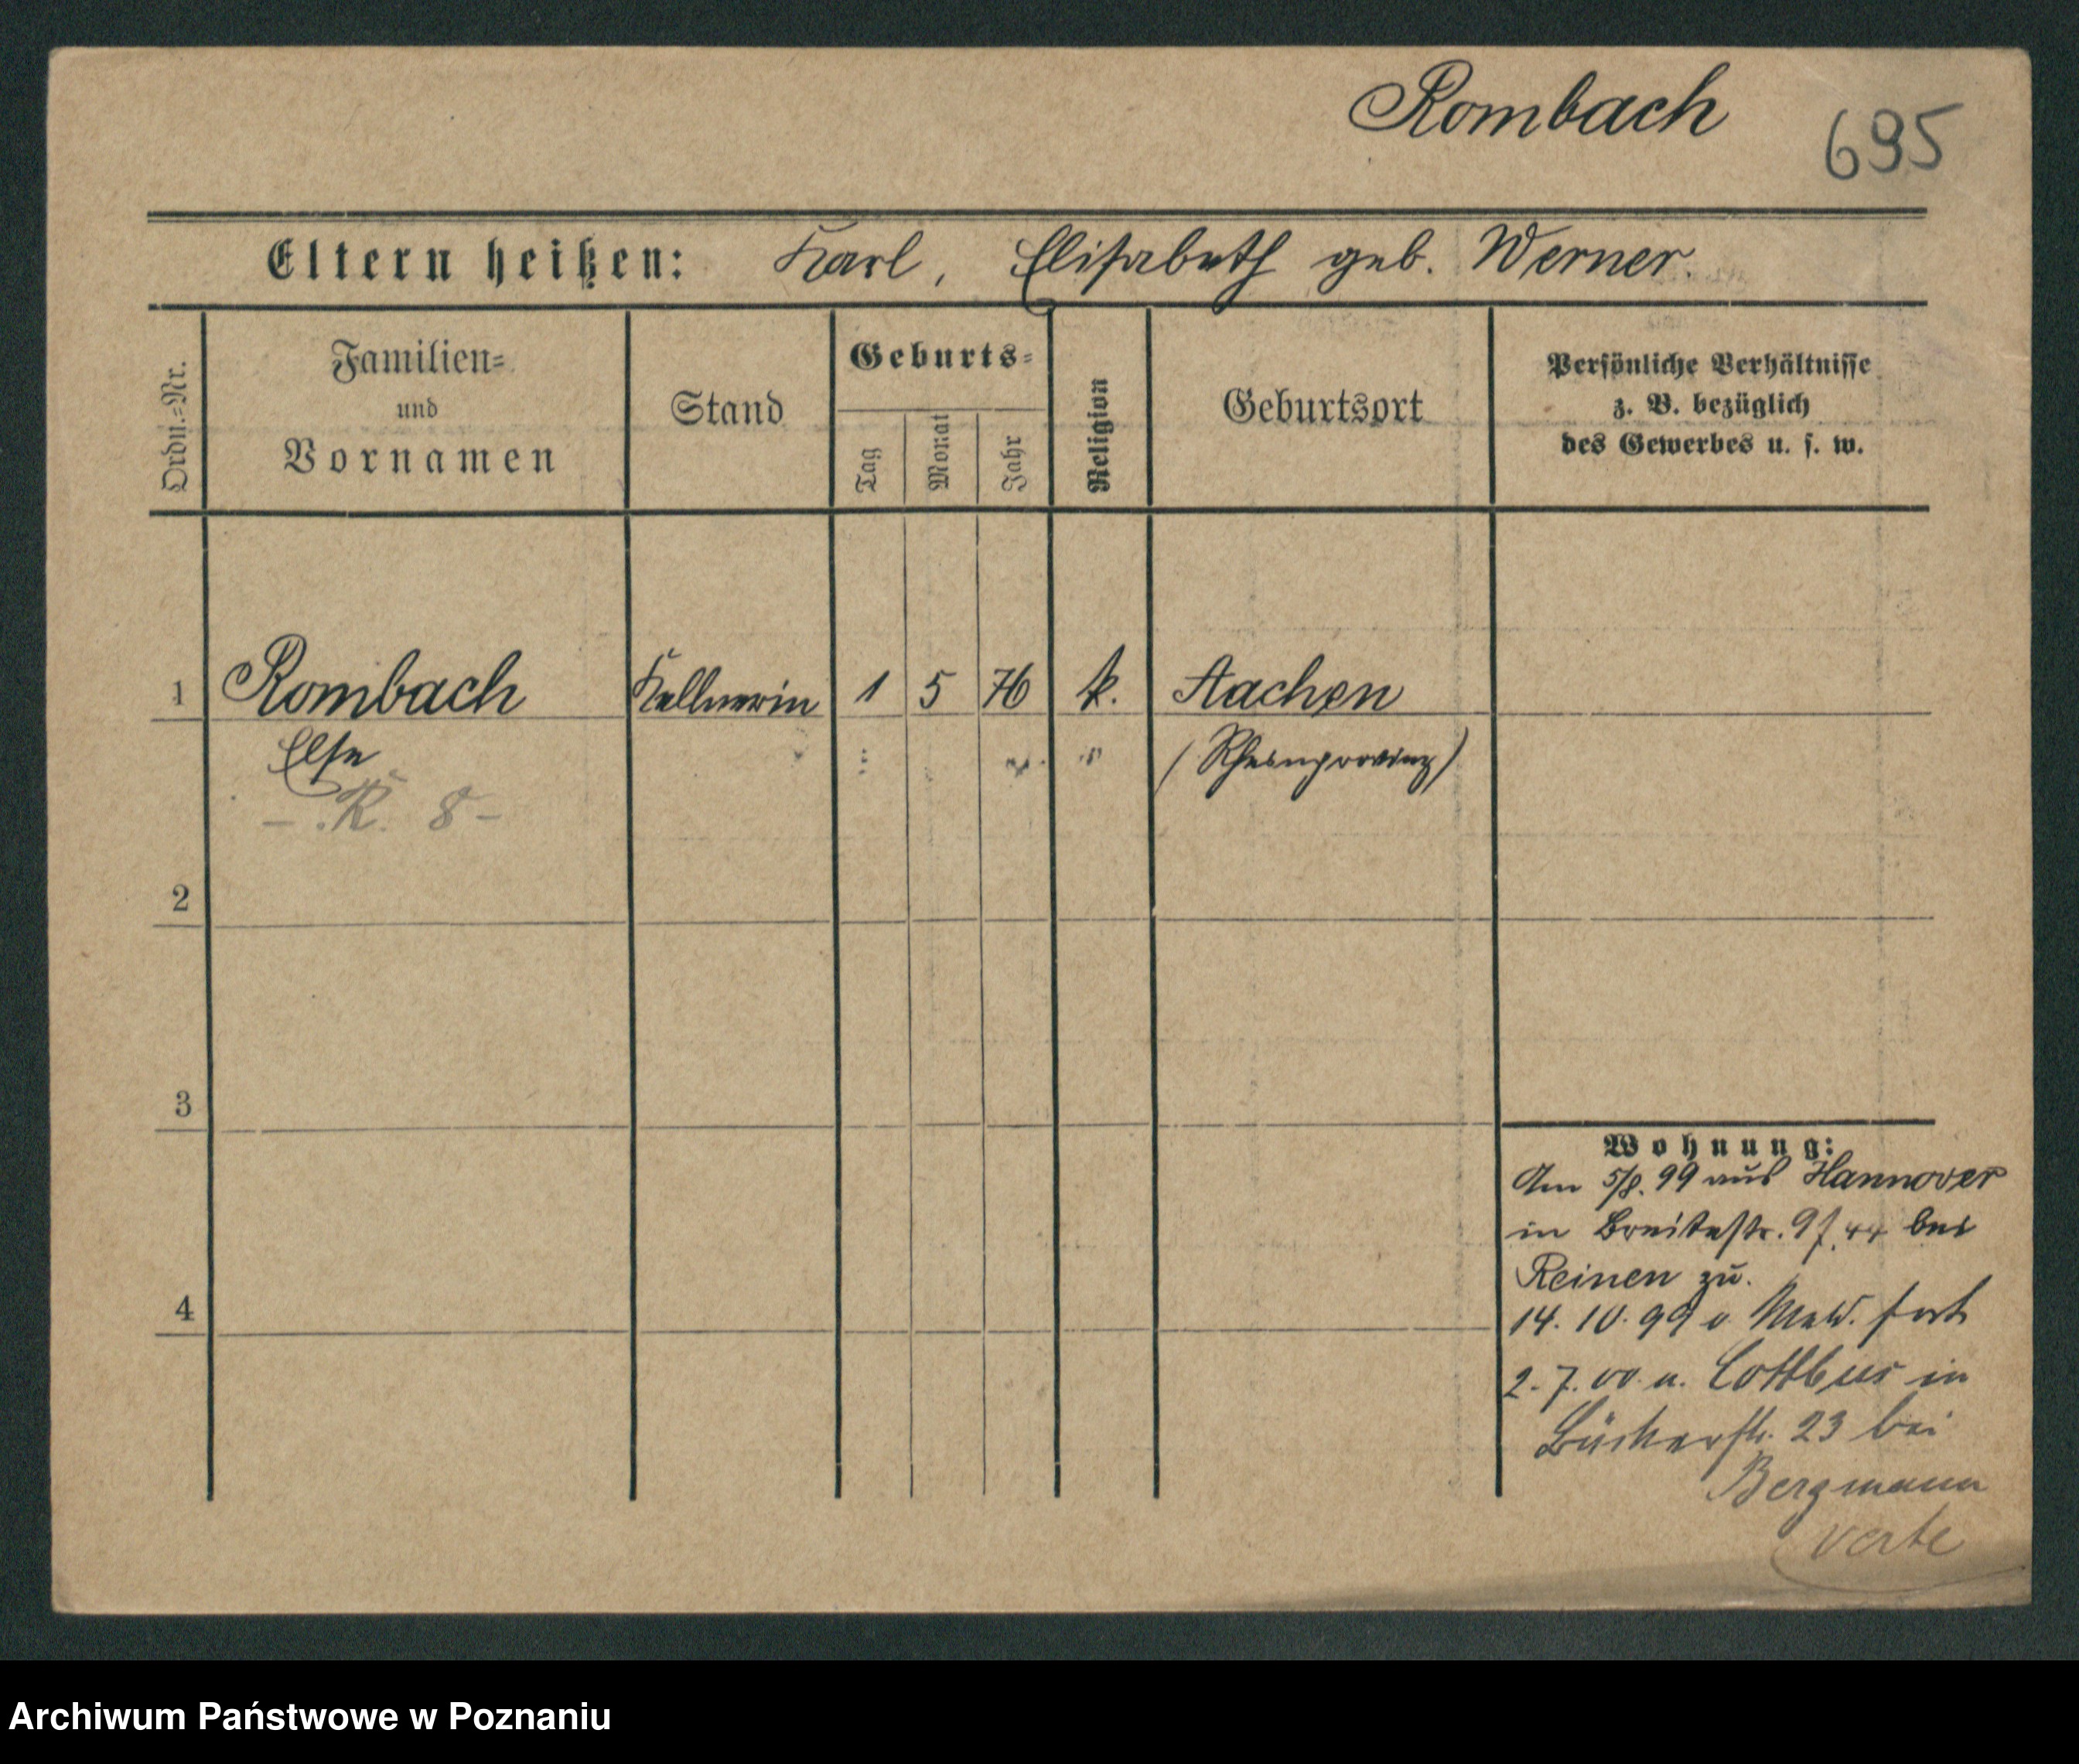 Rombach
695
Eltern heißen: Karl, Elisabeth geb. Werner.
Ordn.=Nr.
Familien=
und
Vornamen
Stand
Geburts=
Tag
Monat
Jahr
Religion
Geburtsort
Persönliche Verhältnisse
z. B. bezüglich
des Gewerbes u. s. w.
1 Rombach Kellnerin 1 5 76 k. Aachen
Else (Rheinprovinz)
- K. 8 -
2
3
4
Wohnung:
Am 5/8. 99 aus Hannover
in Breitestr. 9 bei
Reinen zu.
14. 10. 99 o. Meld. fort
2. 7. 00 a. Cottbus in
Bäckerstr. 23 bei
Bergmann
verte
Archiwum Państwowe w Poznaniu